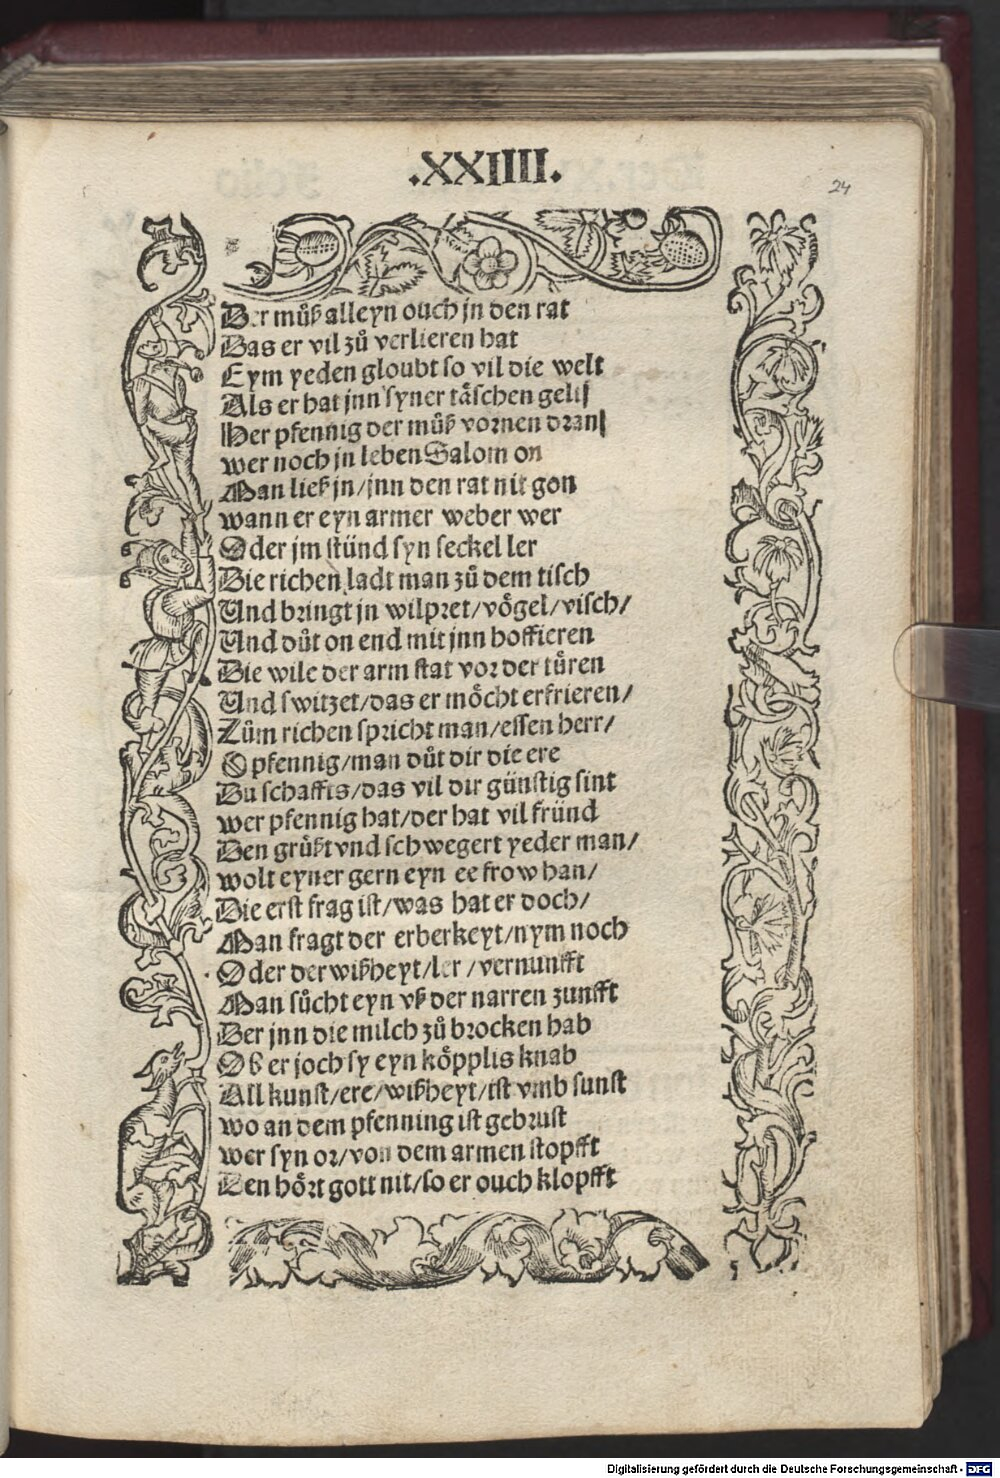 .XXIIII.
24
Der můß alleyn ouch jn den rat
Das er vil zů verlieren hat
Eym yeden gloubt so vil die welt
Als er hat jnn syner täschen gelt
Her pfennig der můß vornen dran
wer noch jn leben Salom on
Man ließ jn/jnn den rat nit gon
wann er eyn armer weber wer
Oder jm stünd syn seckel ler
Die richen ladt man zů dem tisch
Und bringt jn wilpret/vögel/visch/
Und důt on end mit jnn hoffieren
Die wile der arm stat vor der türen
Und switzet/das er möcht erfrieren/
Zům richen spricht man/essen herr/
O pfennig/man důt dir die ere
Du schaffts/das vil dir günstig sint
wer pfennig hat/der hat vil fründ
Den grüßt vnd schwegert yeder man/
wolt eyner gern eyn ee frow han/
Die erst frag ist/was hat er doch/
Man fragt der erberkeyt/nym noch
Oder der wißheyt/ler/vernunfft
Man sůcht eyn vß der narren zunfft
Der jnn die milch zů brocken hab
Ob er joch sy eyn köpplis knab
All kunst/ere/wißheyt/ist vmb sunst
wo an dem pfenning ist gebrust
wer syn or/von dem armen stopfft
Den hört gott nit/so er ouch klopfft
Digitalisierung gefördert durch die Deutsche Forschungsgemeinschaft - DFG